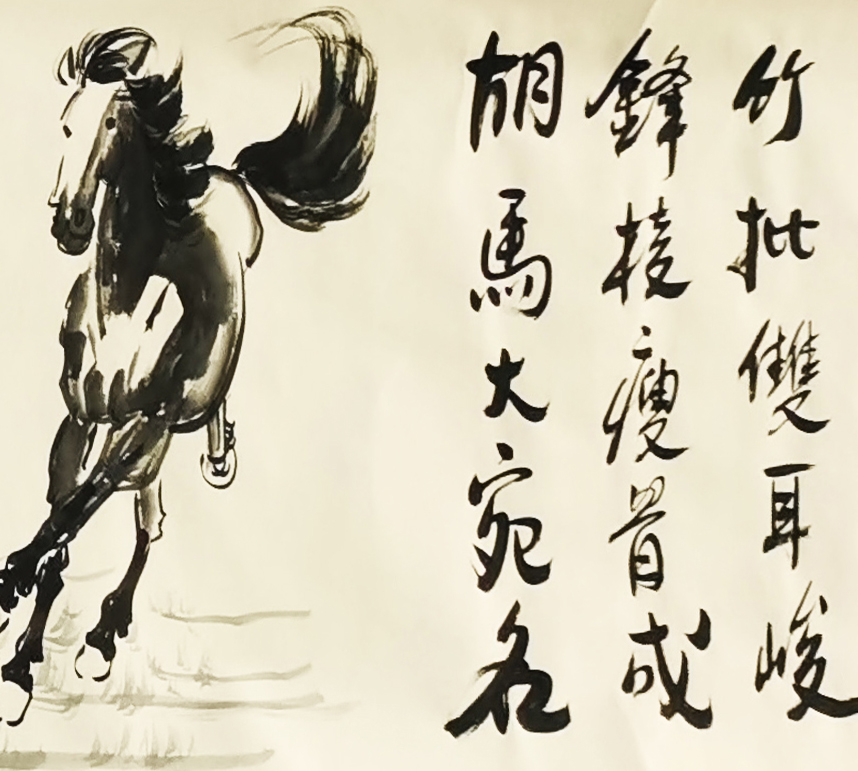 竹批雙耳峻
鋒棱瘦骨成
胡馬大宛名